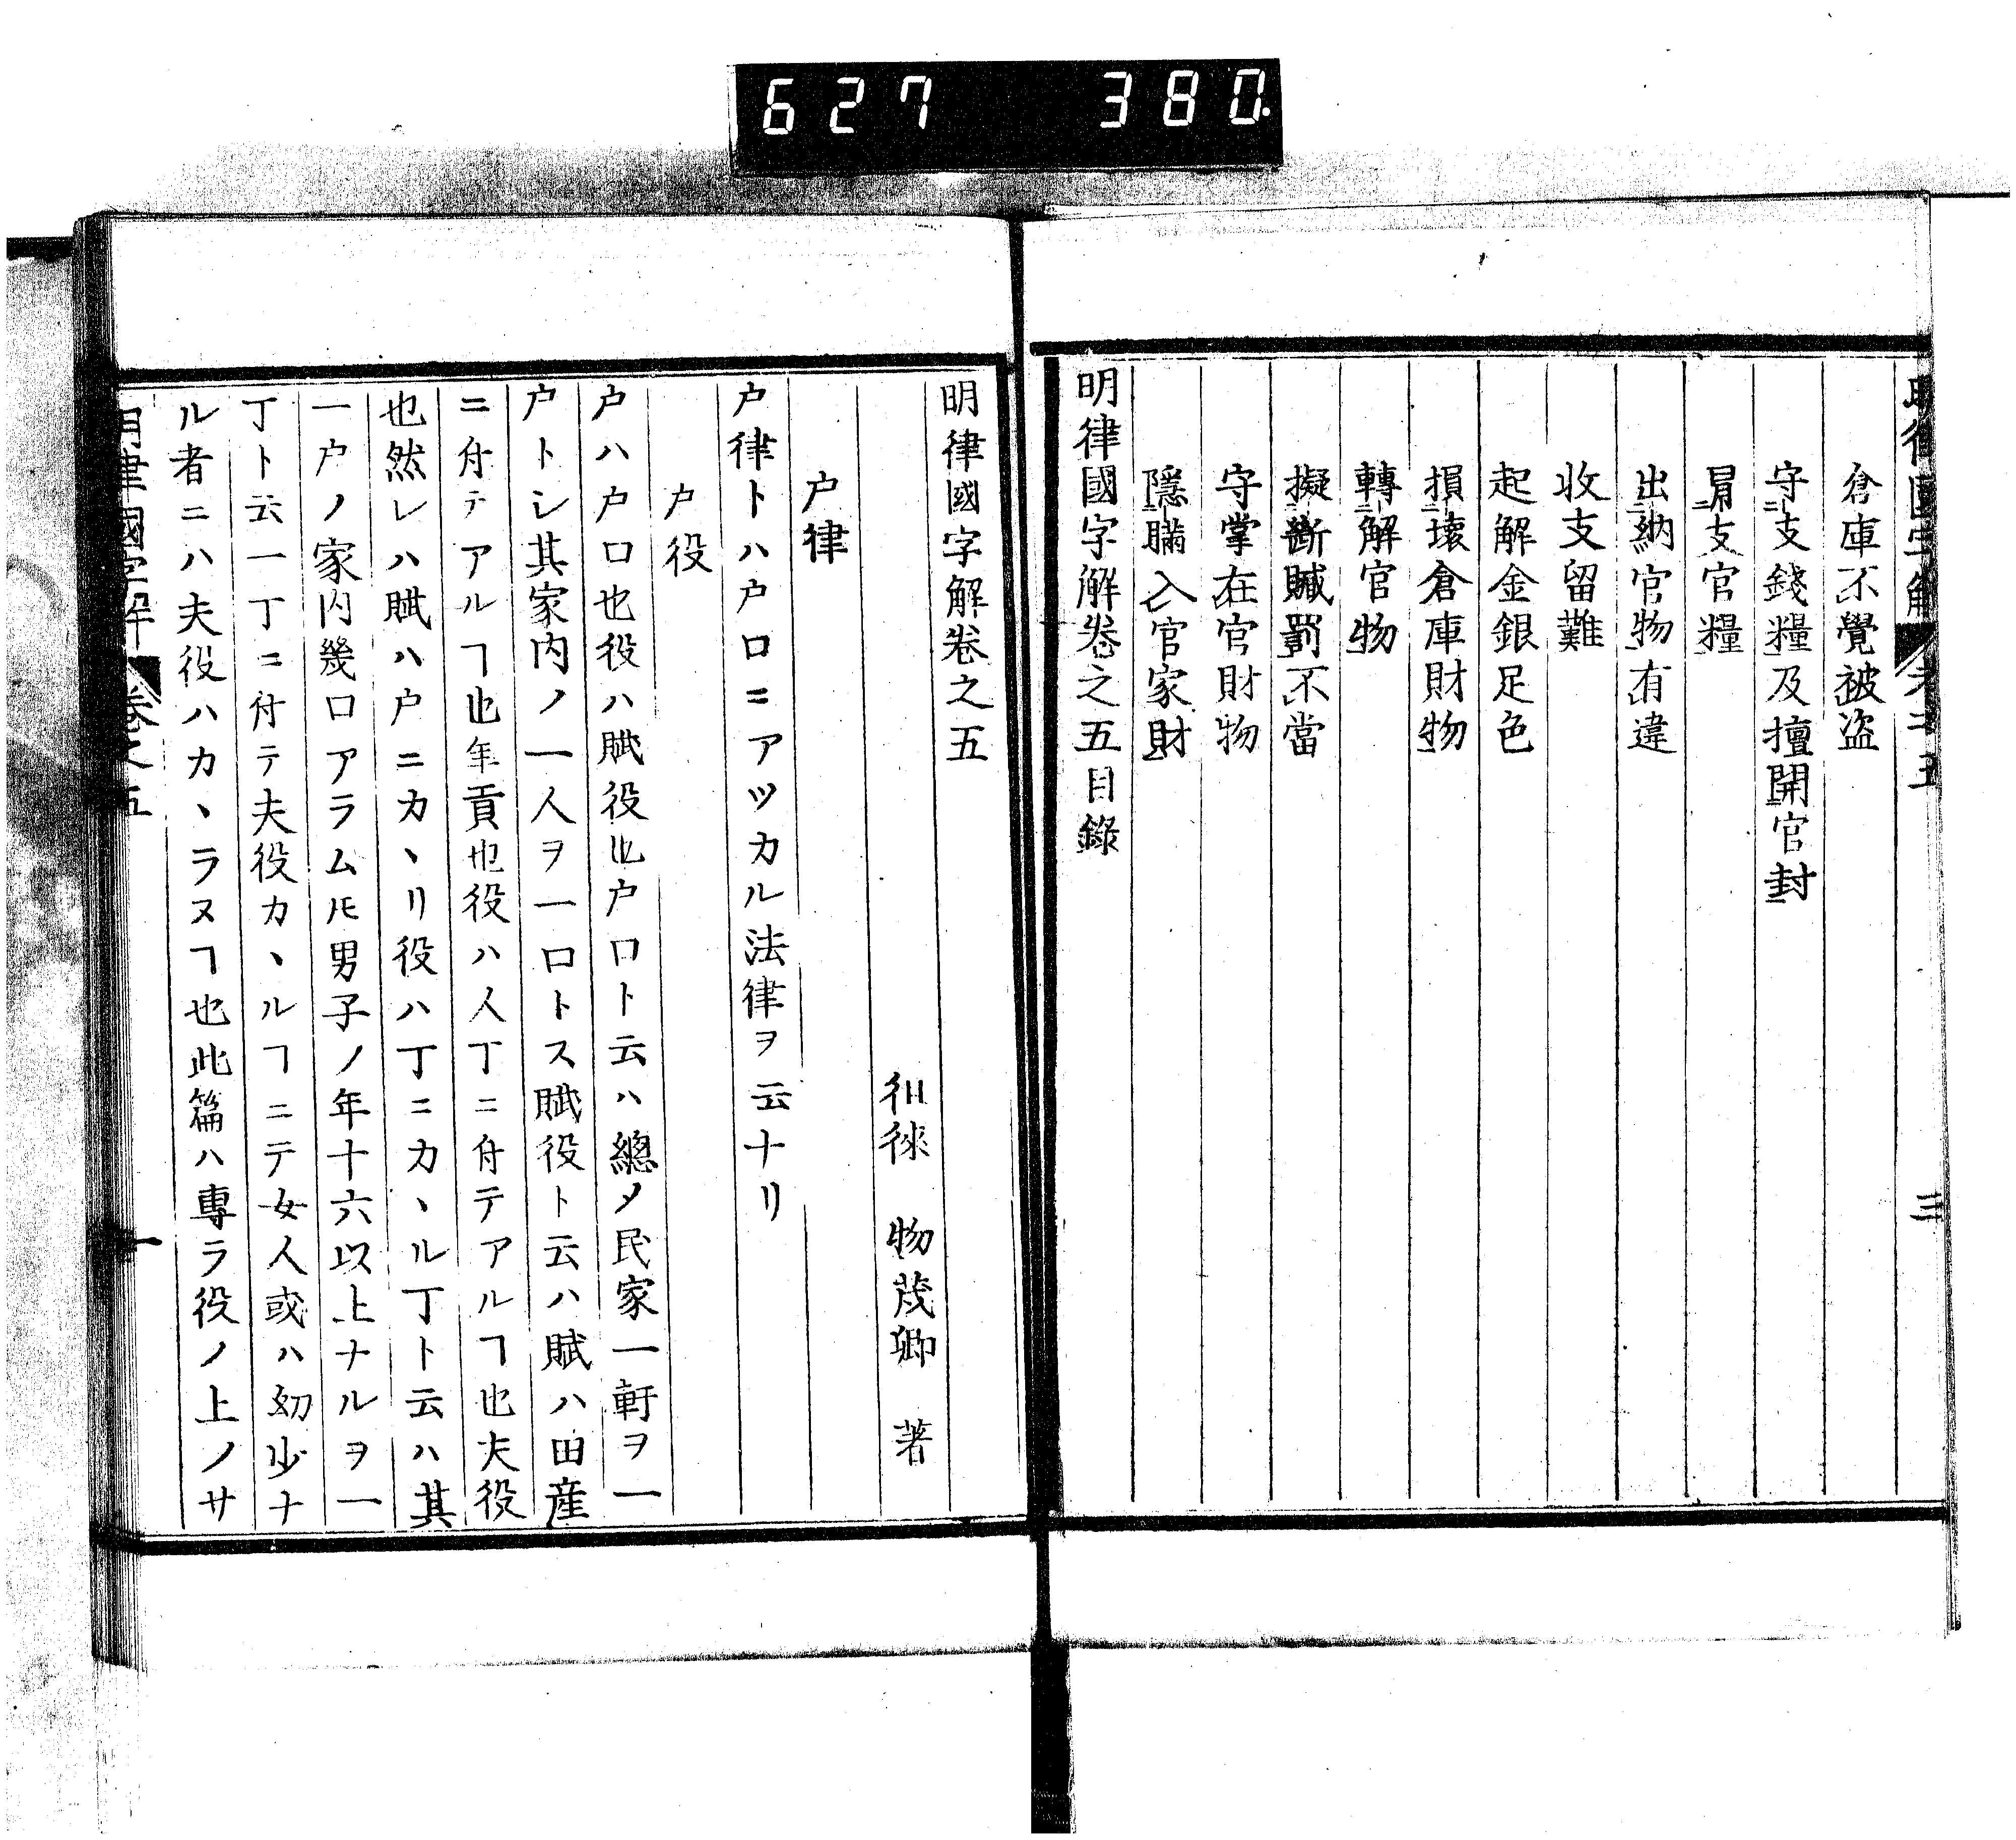 627 380
明律國字解 卷之五 三
倉庫不覺被盗
守支錢糧及擅開官封
冒支官糧
出納官物有違
收支留難
起解金銀足色
損壞倉庫財物
轉解官物
擬斷贓罰不當
守掌在官財物
隱瞞入官家財
明律國字解卷之五目錄
明律國字解卷之五
徂徠 物茂卿 著
户律
户律トハ户口ニアツカル法律ヲ云ナリ
户役
户ハ户口也役ハ賦役也户口ト云ハ總〆民家一軒ヲ一
户トシ其家内ノ一人ヲ一口トス賦役ト云ハ賦ハ田産
ニ付テアルヿ也年貢也役ハ人丁ニ付テアルヿ也夫役
也然レハ賦ハ户ニカヽリ役ハ丁ニカヽル丁ト云ハ其
一户ノ家内幾口アラム𪜈男子ノ年十六以上ナルヲ一
丁ト云一丁ニ付テ夫役カヽルヿニテ女人或ハ幼少ナ
ル者ニハ夫役ハカヽラヌヿ也此篇ハ專ラ役ノ上ノサ
明律國字解 卷之五 一